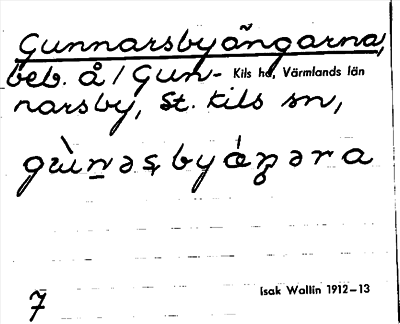 Gunnarsbyängarna,
beb. å / Gun- Kils hd, Värmlands län
narsby, St. Kils sn,
7
Isak Wallin 1912–13